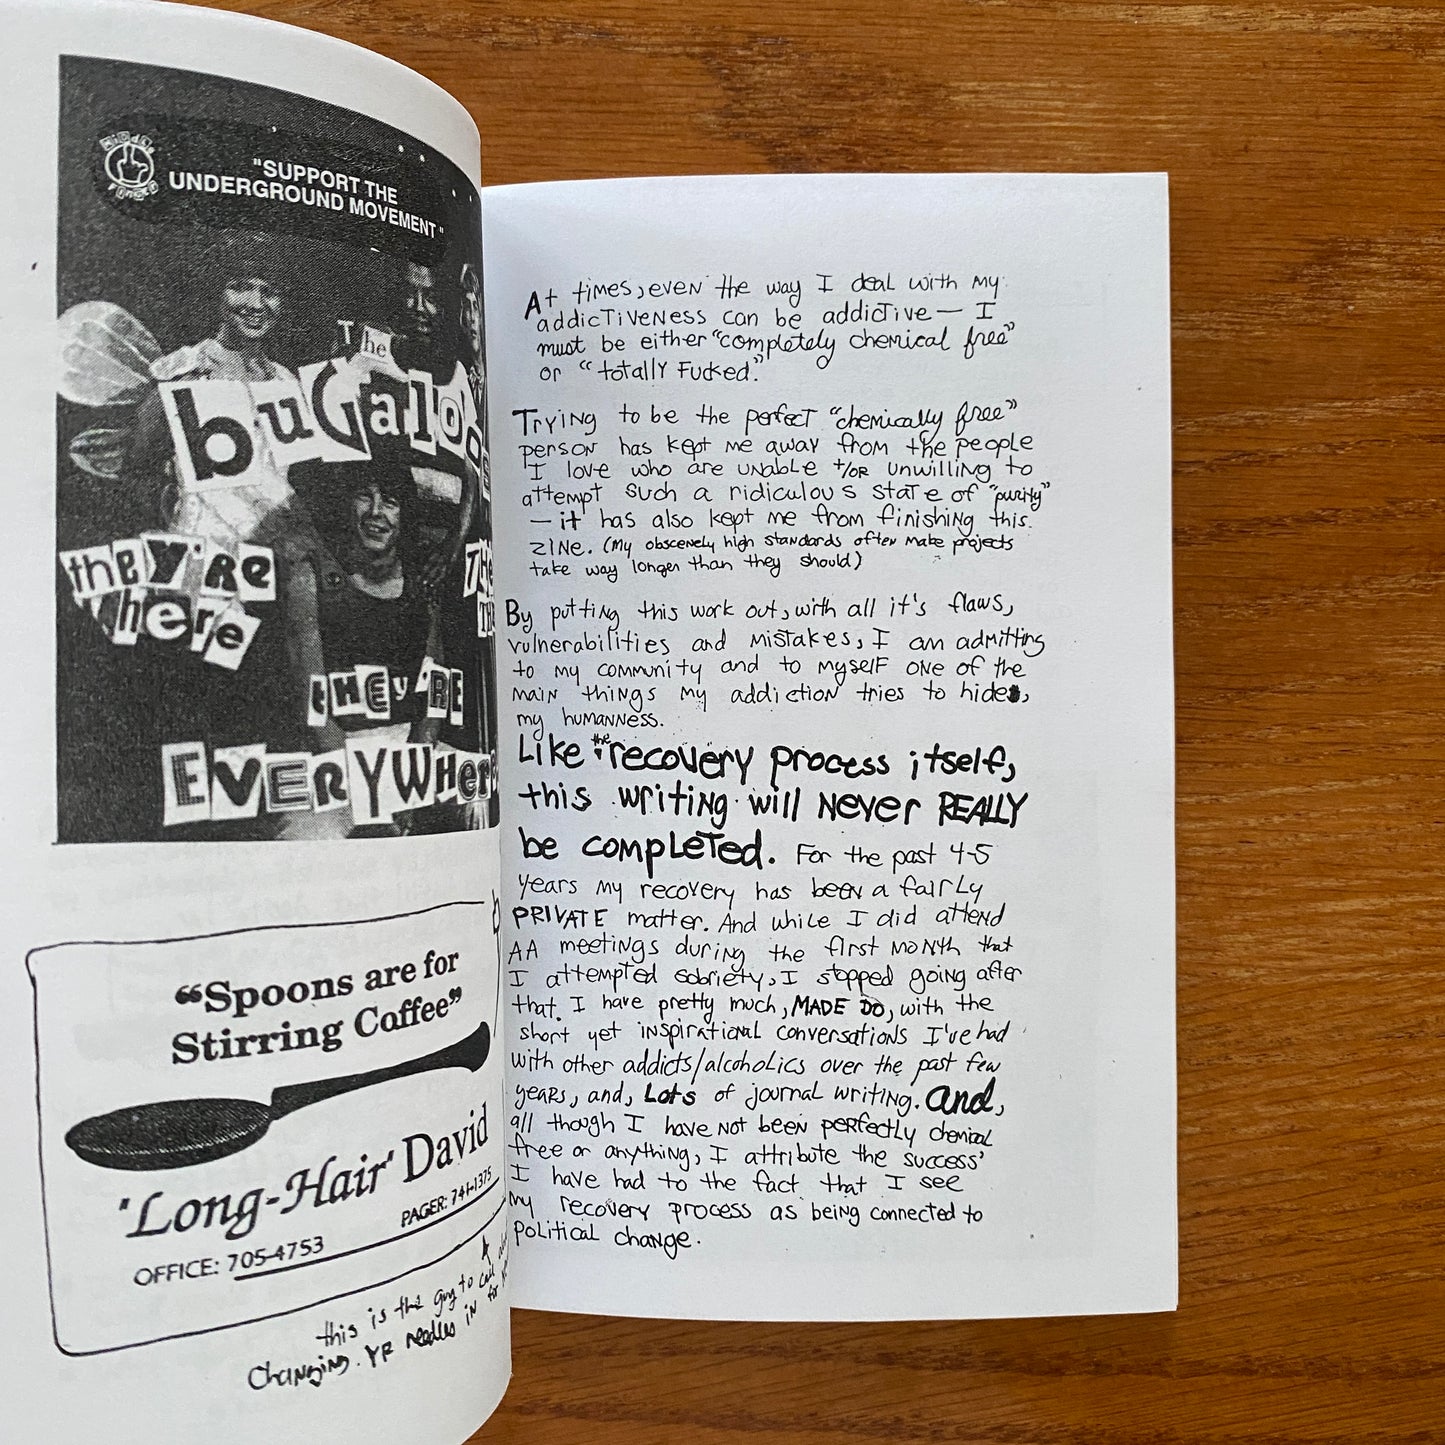 Middle Finger
"SUPPORT THE
UNDERGROUND MOVEMENT"
The
buGaloo
they're
here
they're
EVERYWhere
"Spoons are for
Stirring Coffee"
'Long-Hair' David
PAGER: 741-1375
OFFICE: 705-4753
this is the guy to call
Changing YR needles in for
At times, even the way I deal with my
addicTiveness can be addicTive — I
must be either "completely chemical free"
or "totally Fucked."
Trying to be the perfect "chemically free"
person has kept me away from the people
I love who are unable +/or unwilling to
attempt such a ridiculous state of "purity"
— it has also kept me from finishing this
zine. (My obscenely high standards often make projects
take way longer than they should)
By putting this work out, with all it's flaws,
vulnerabilities and mistakes, I am admitting
to my community and to myself one of the
main things my addiction tries to hide,
my humanness.
Like the recovery process itself,
this writing will never REALLY
be completed. For the past 4-5
years my recovery has been a fairly
PRIVATE matter. And while I did attend
AA meetings during the first month that
I attempted sobriety, I stopped going after
that. I have pretty much, MADE DO, with the
short yet inspirational conversations I've had
with other addicts/alcoholics over the past few
years, and, Lots of journal writing. and,
all though I have not been perfectly chemical
free or anything, I attribute the success
I have had to the fact that I see
my recovery process as being connected to
political change.